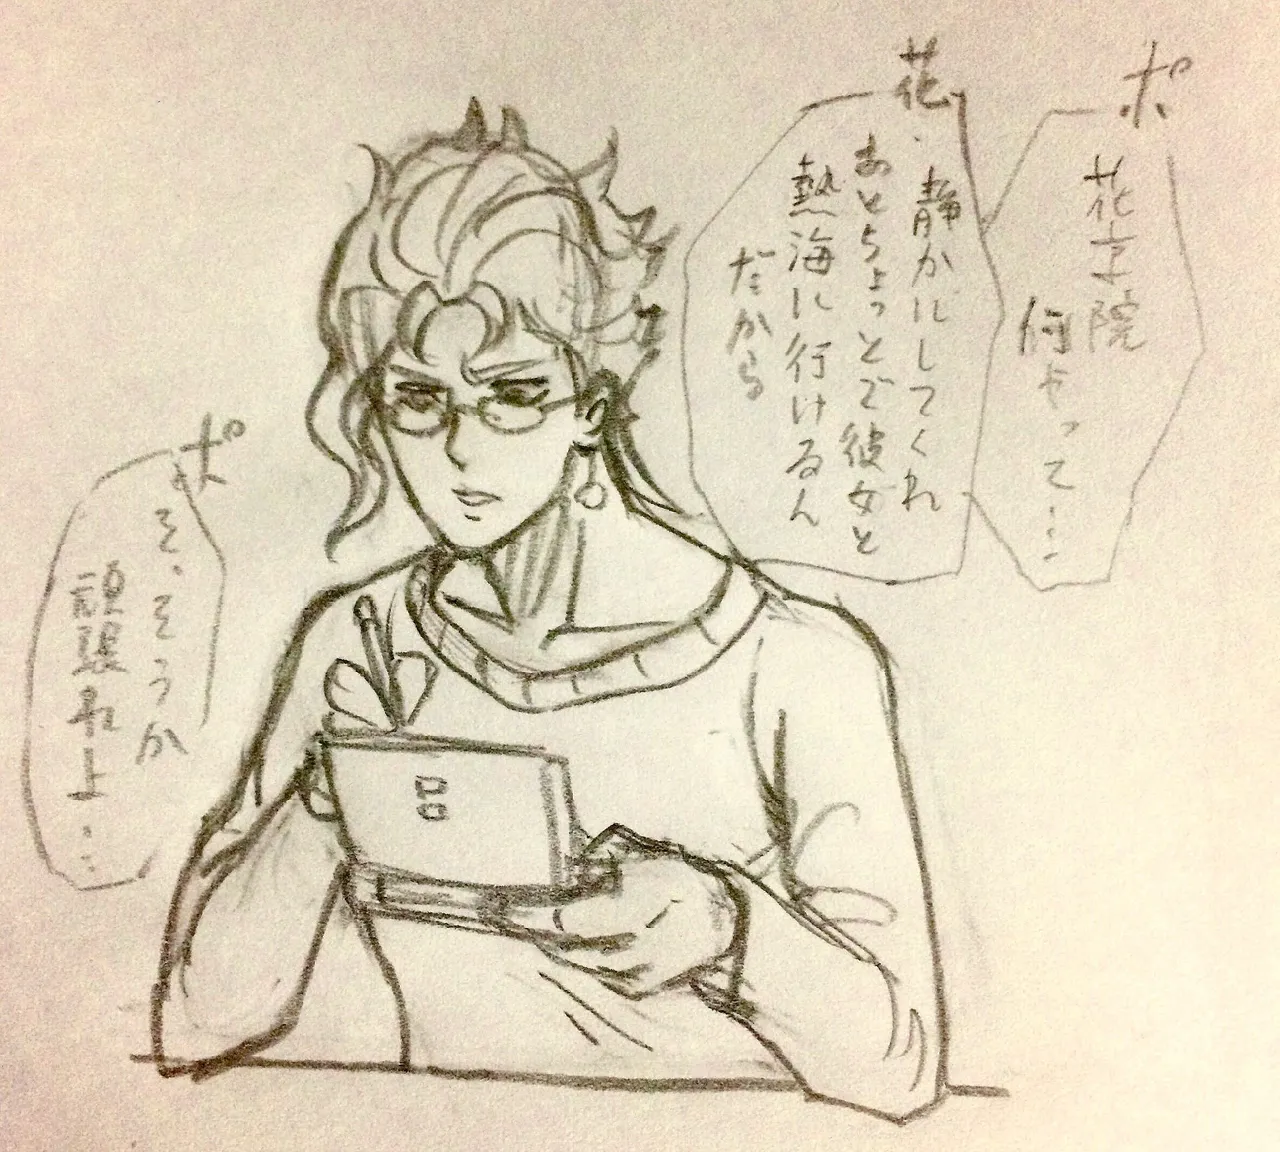 ポ
花京院
何やって…
花
静かにしてくれ
あとちょっとで彼女と
熱海に行けるん
だから
ポ
そ、そうか
頑張れよ…